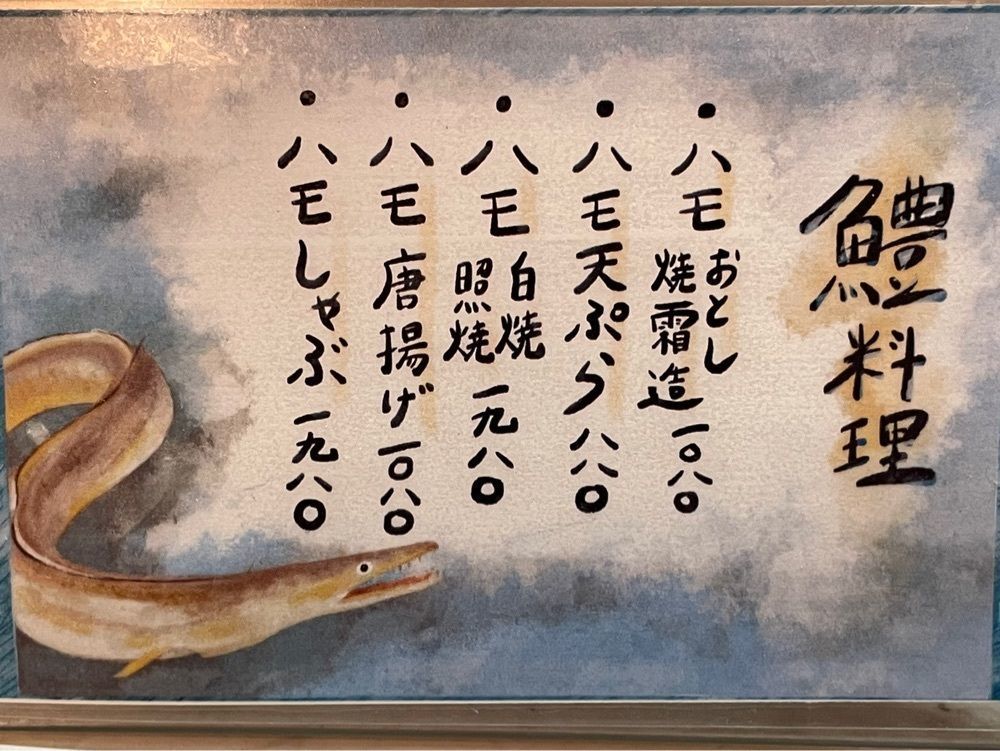 鱧料理
・ハモ おとし 焼霜造 一〇八〇
・ハモ天ぷら 八八〇
・ハモ 白焼 照焼 一九八〇
・ハモ唐揚げ 一〇八〇
・ハモしゃぶ 一九八〇